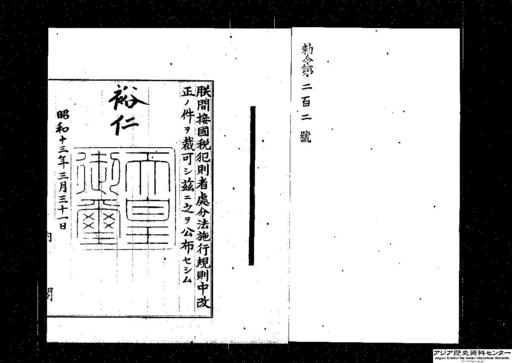 勅令第二百二號
朕間接國税犯則者處分法施行規則中改
正ノ件ヲ裁可シ茲ニ之ヲ公布セシム
裕仁
天皇御璽
昭和十三年三月三十一日
内閣
アジア歴史資料センター
Japan Center for Asian Historical Records